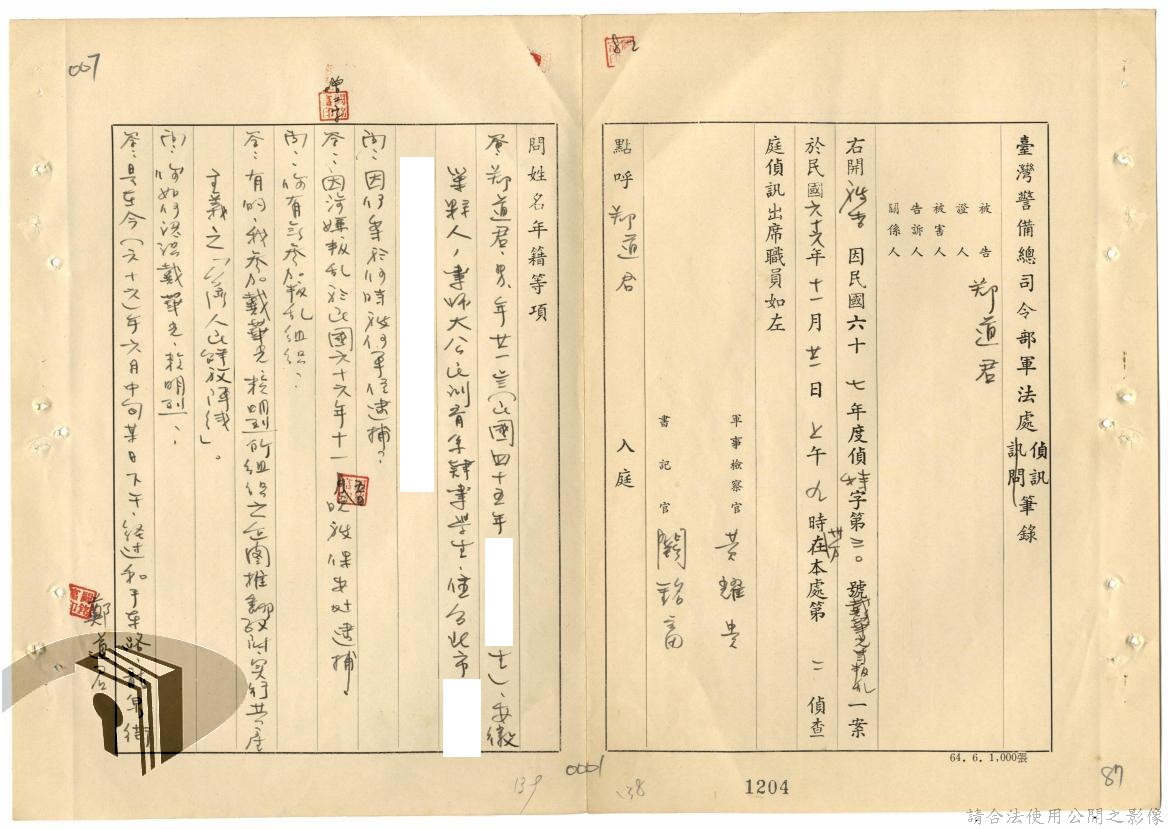 臺灣警備總司令部軍法處偵訊訊問筆錄
被告
證人
被害人
告訴人
關係人
鄭道君
右開被告因民國六十七年度偵特字第三○號戴華光等叛乱一案
於民國六十六年十一月廿一日上午九時在本處第二偵查
庭偵訊出席職員如左
軍事檢察官 黃耀貴
書記官
點呼 鄭道君 入庭
64. 6. 1,000張
87
1204
138
問姓名年籍等項
答:鄭道君,男,年廿一歲(民國四十五年
生),安徽
人,業師大公民訓育系肄業學生,住台北市
問:因何事於何時被何單位逮捕?
答:因涉嫌叛乱於民國六十六年十一月
晚被保安處逮捕
問:你有無參加叛乱組織?
答:有的,我參加戴華光、賴明烈所組織之企圖推翻政府,實行共產
主義之「台灣人民解放陣线」。
問:你如何認識戴華光、賴明烈?
答:是在今(六十六)年六月中旬某日下午,經過和平東路
街
鄭道君
007
0001
139
請合法使用公開之影像